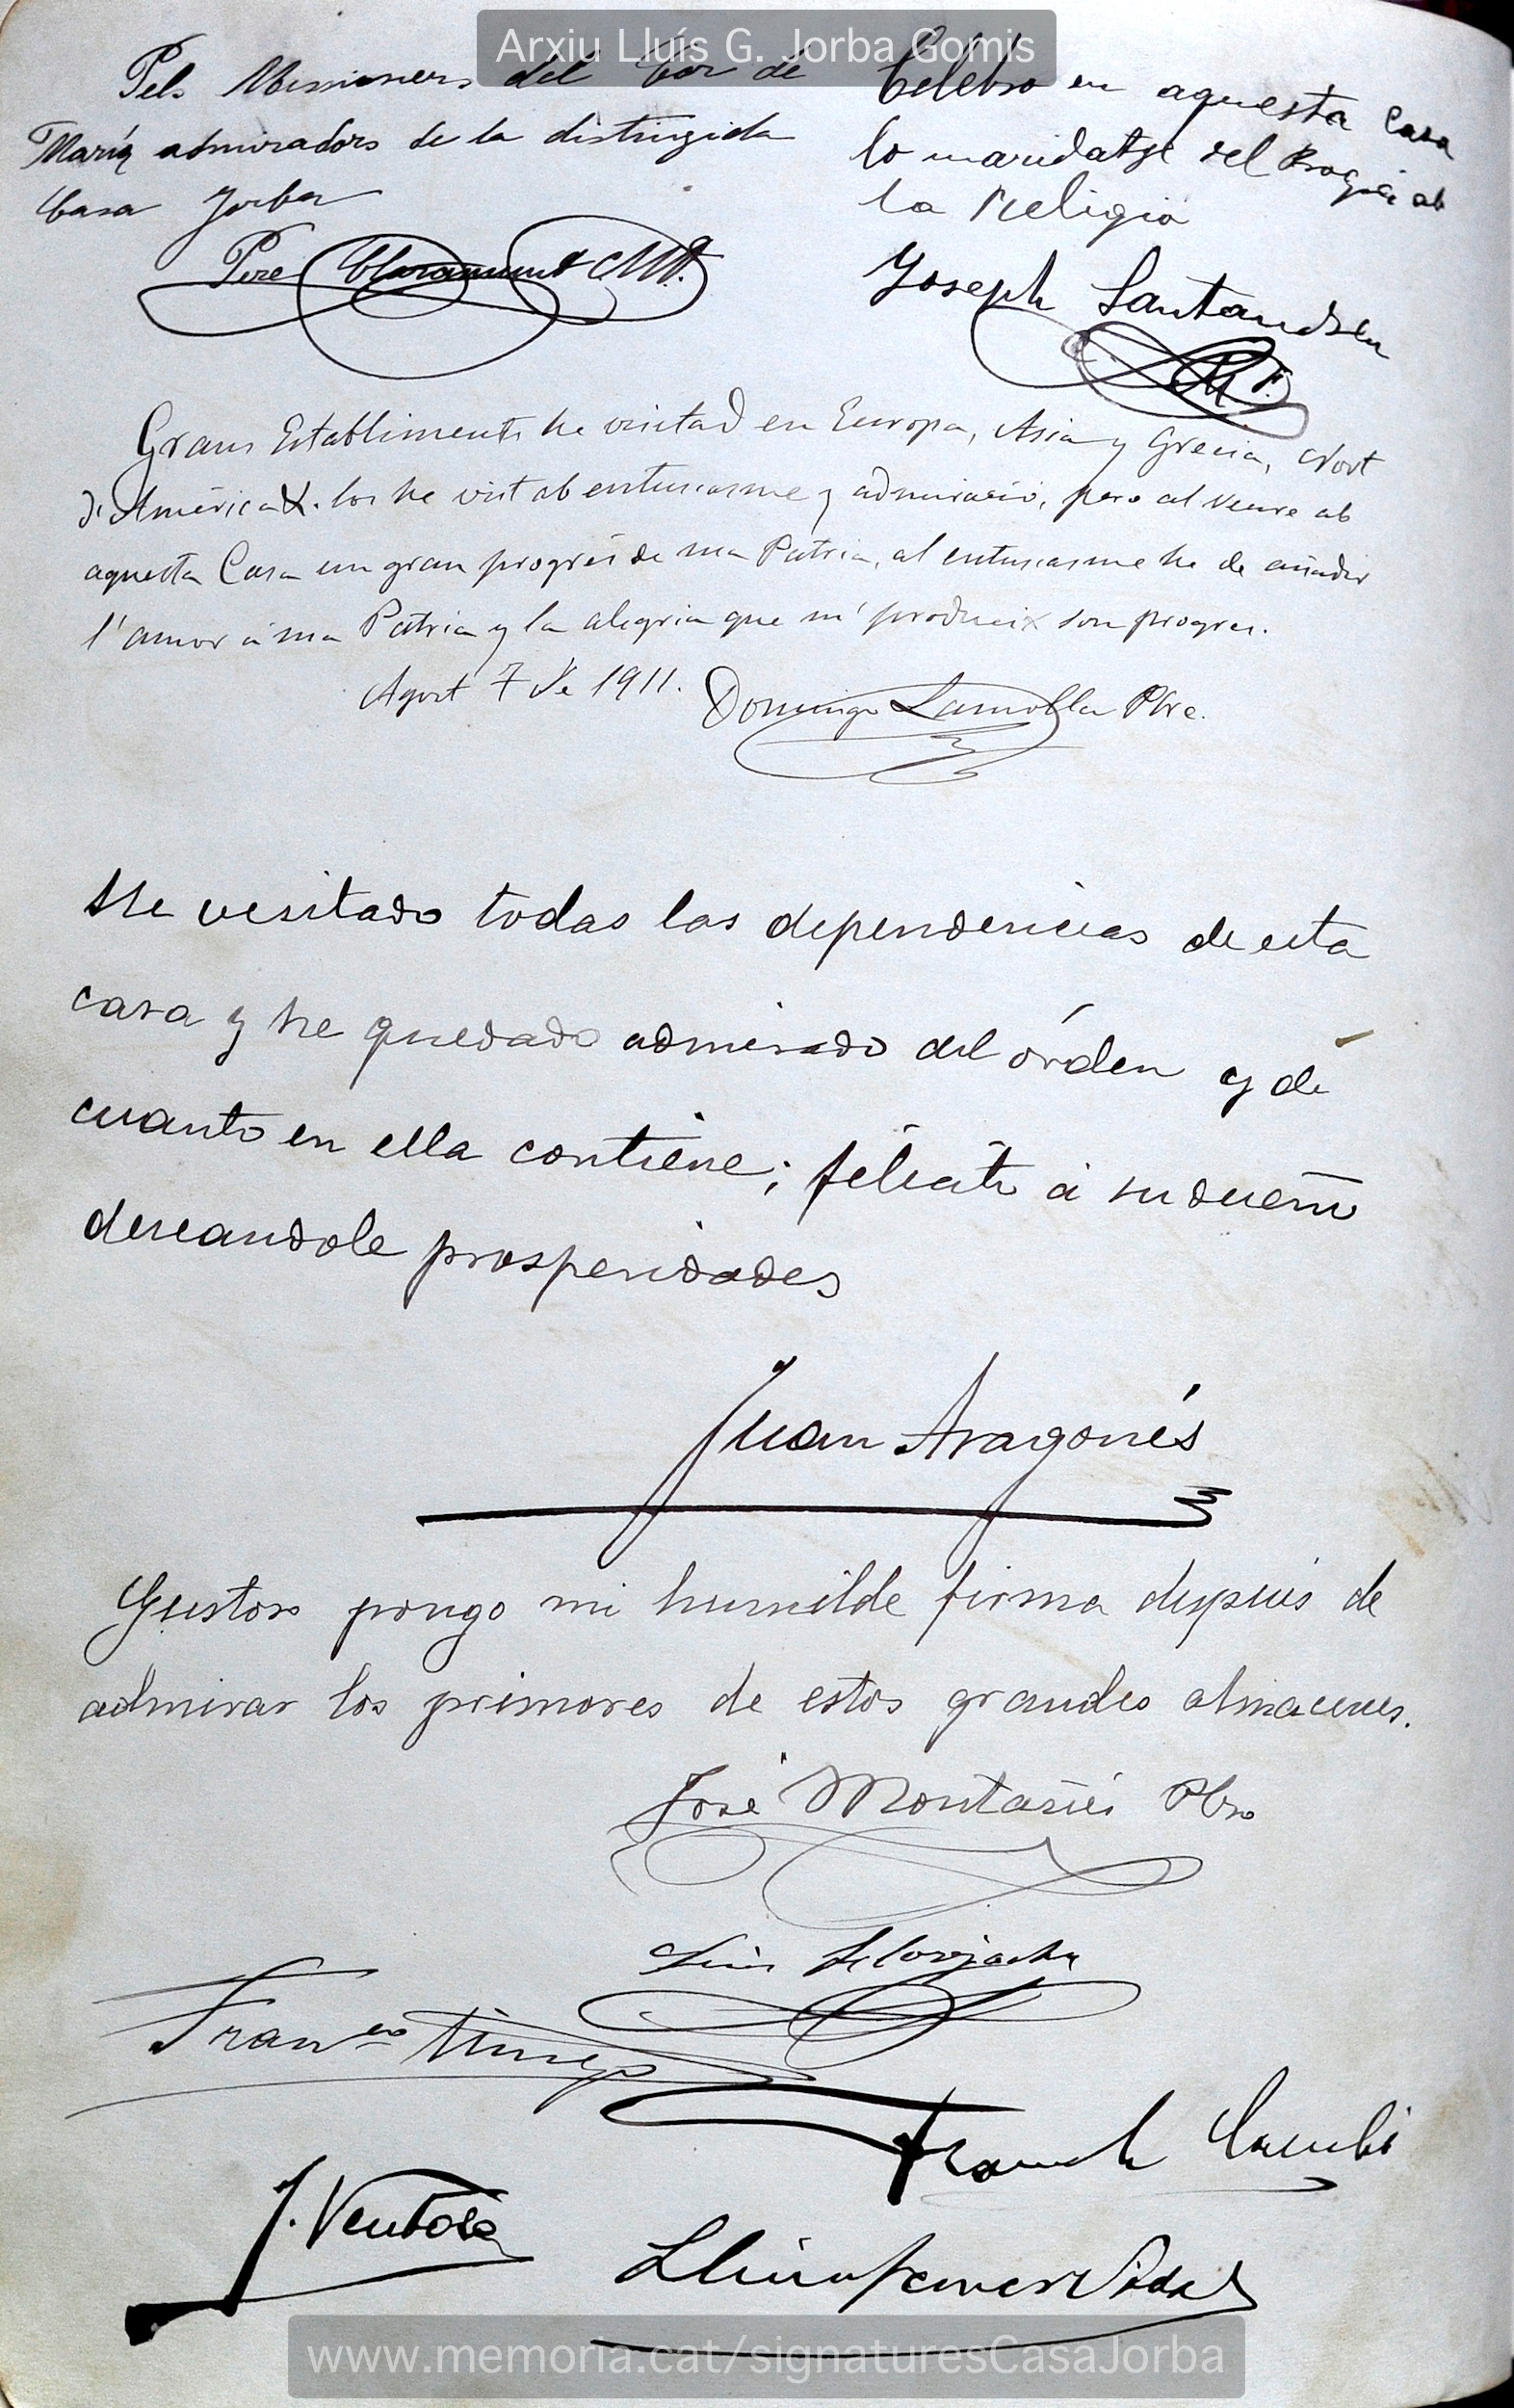 Arxiu Lluís G. Jorba Gomis
Pels Missioners del Cor de
María admiradors de la distingida
Casa Jorba
Pere Claramunt C.M.F.
Celebro en aquesta Casa
lo maridatje del Progrés ab
la Religió
Joseph Santandreu
C.M.F.
Grans Establiments he visitad en Europa, Asia y Grecia, Nort
d'América &. los he vist ab entusiasme y admiració, pero al veure ab
aquesta Casa un gran progrés de ma Patria, al entusiasme he de añadir
l'amor á ma Patria y la alegria que m' produeix son progres.
Agost 7 de 1911. Domingo Lamolla Pbre.
He visitado todas las dependencias de esta
casa y he quedado admirado del órden y de
cuanto en ella contiene; felicito á su dueño
deseandole prosperidades
Juan Aragonés
Gustoso pongo mi humilde firma después de
admirar los primores de estos grandes almacenes.
José Montañés Pbro
Luis
Franco
Francesch Cambó
J. Ventosa
Lluis Ferrer Vidal
www.memoria.cat/signaturesCasaJorba